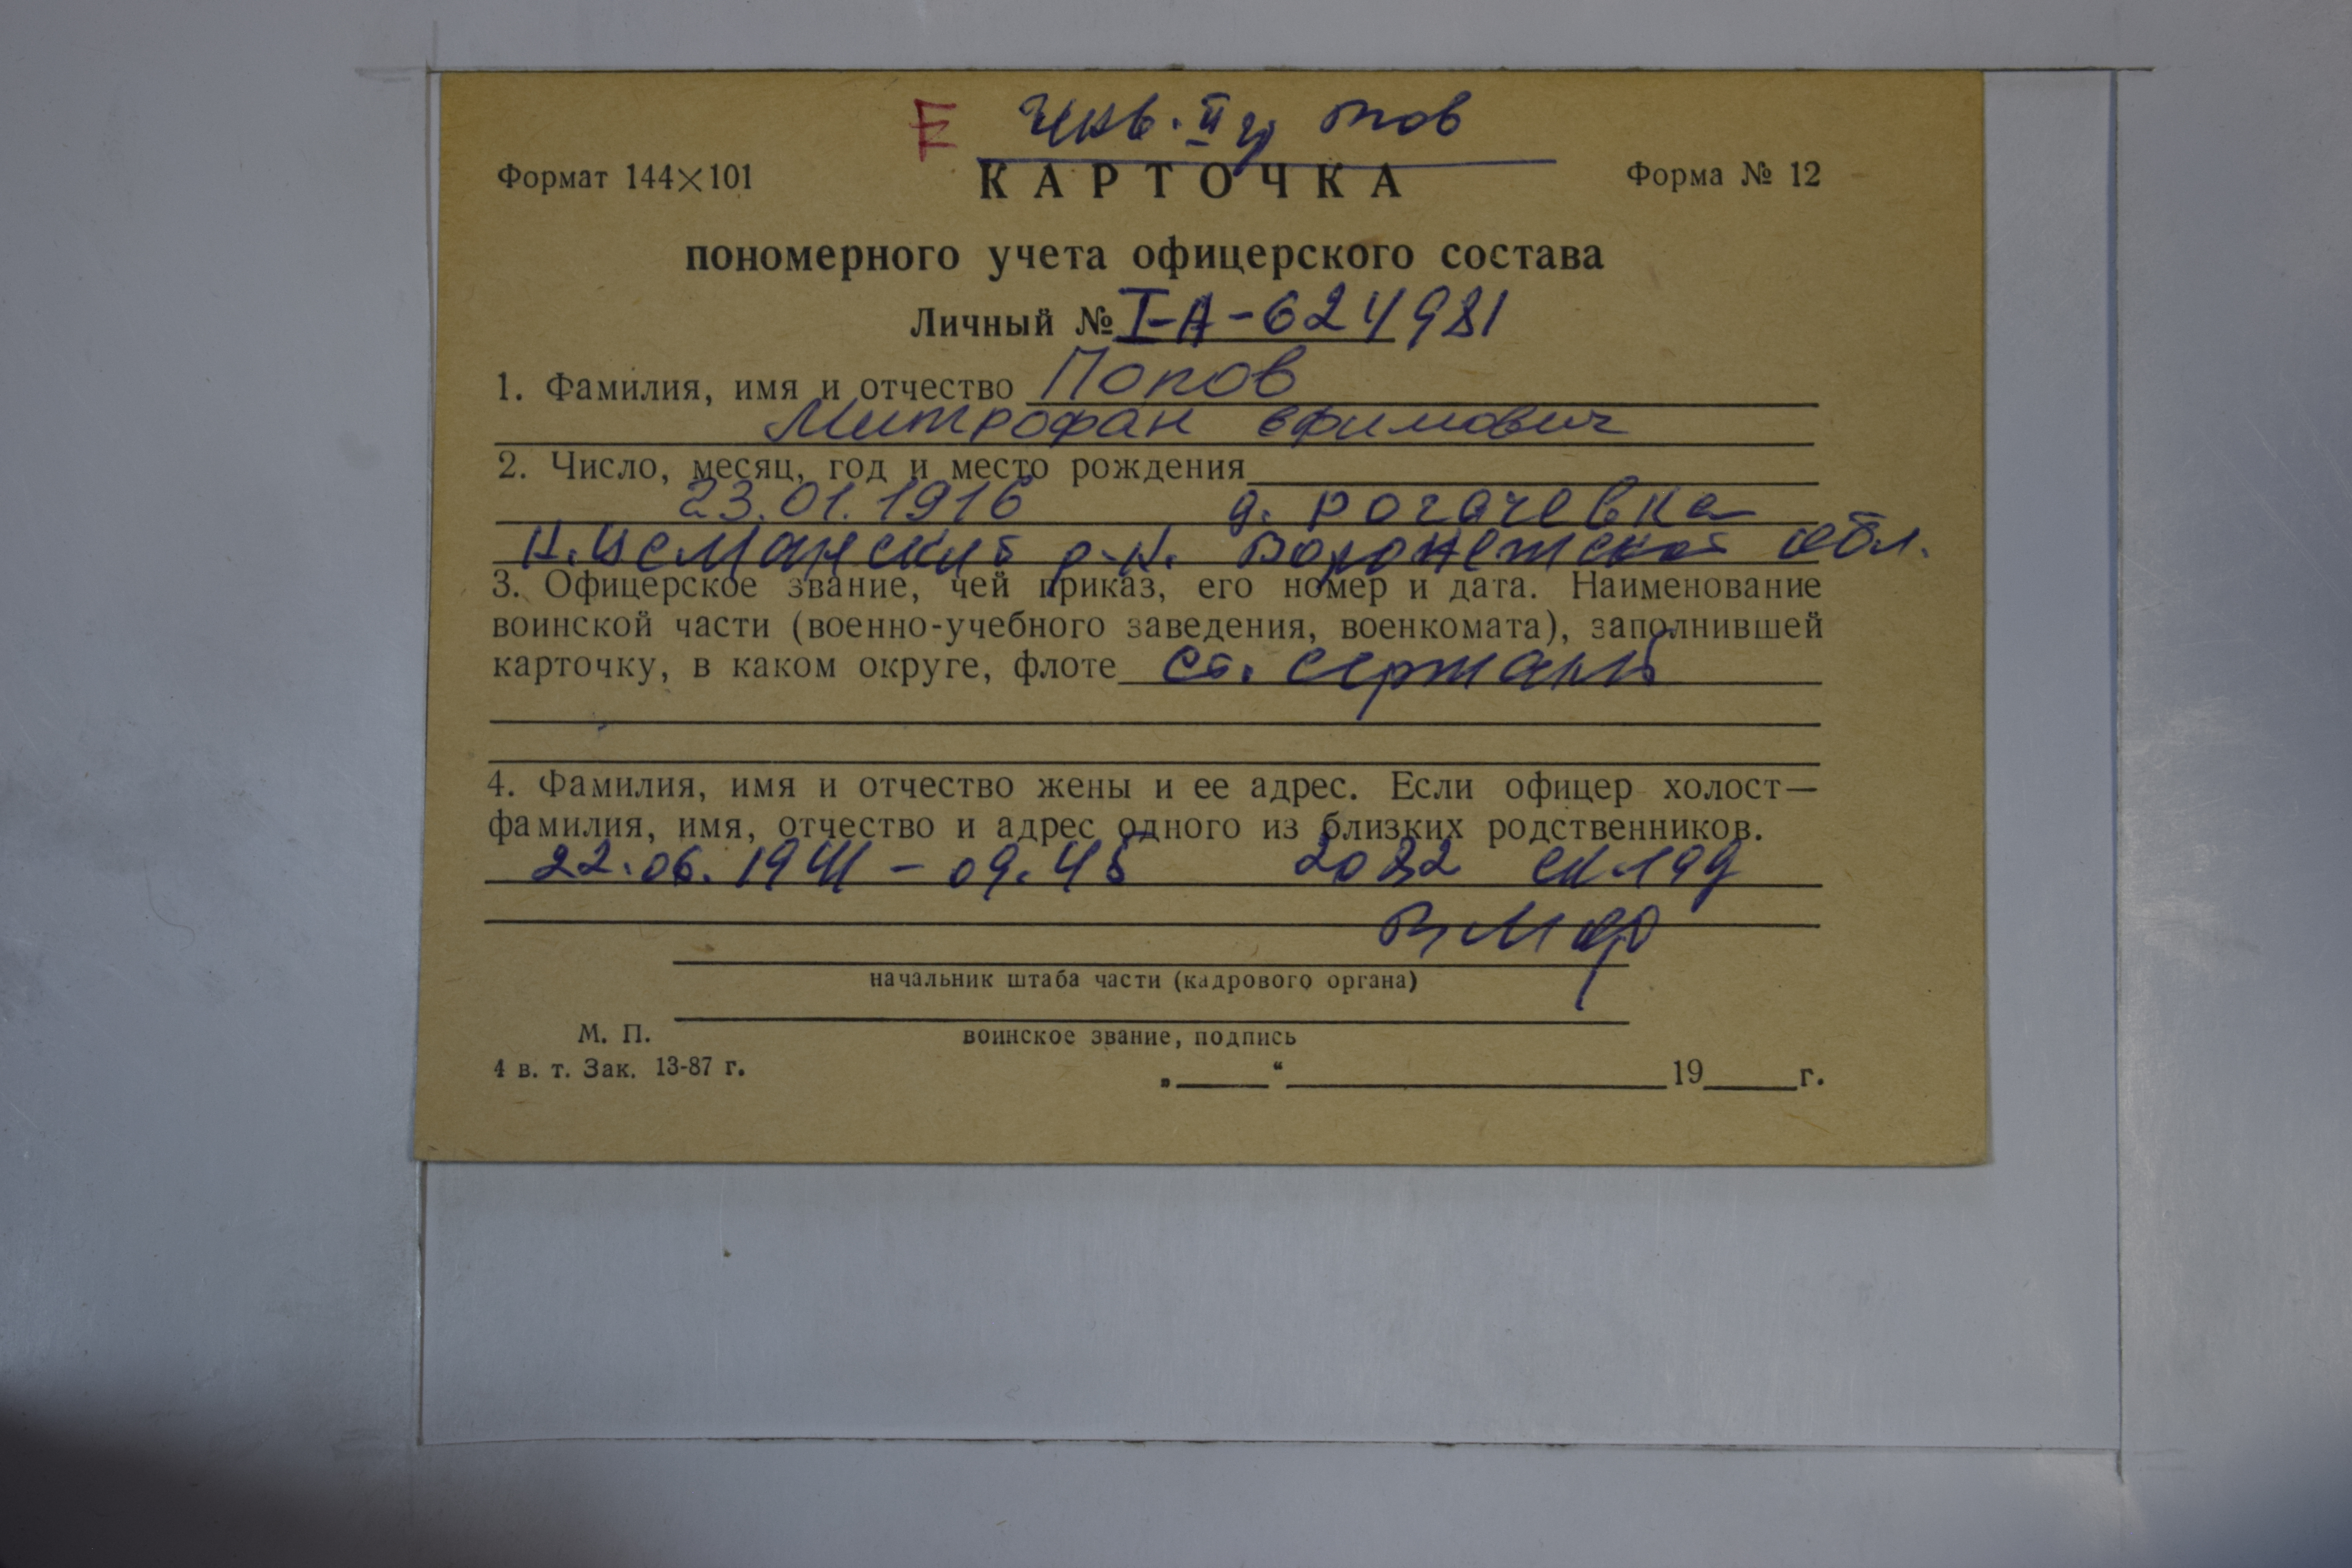 Е Инв. II гр ПОВ
Формат 144×101 КАРТОЧКА Форма № 12
пономерного учета офицерского состава
Личный № I-А-624981
1. Фамилия, имя и отчество Попов
Митрофан Ефимович
2. Число, месяц, год и место рождения
23.01.1916 д. Рогачевка
Н. Усманский р-н. Воронежской обл.
3. Офицерское звание, чей приказ, его номер и дата. Наименование
воинской части (военно-учебного заведения, военкомата), заполнившей
карточку, в каком округе, флоте ст. сержант
4. Фамилия, имя и отчество жены и ее адрес. Если офицер холост—
фамилия, имя, отчество и адрес одного из близких родственников.
22.06.1941 – 09.45 склад
ВМФ
начальник штаба части (кадрового органа)
М. П. воинское звание, подпись
4 в. т. Зак. 13-87 г.
„ “ 19 г.